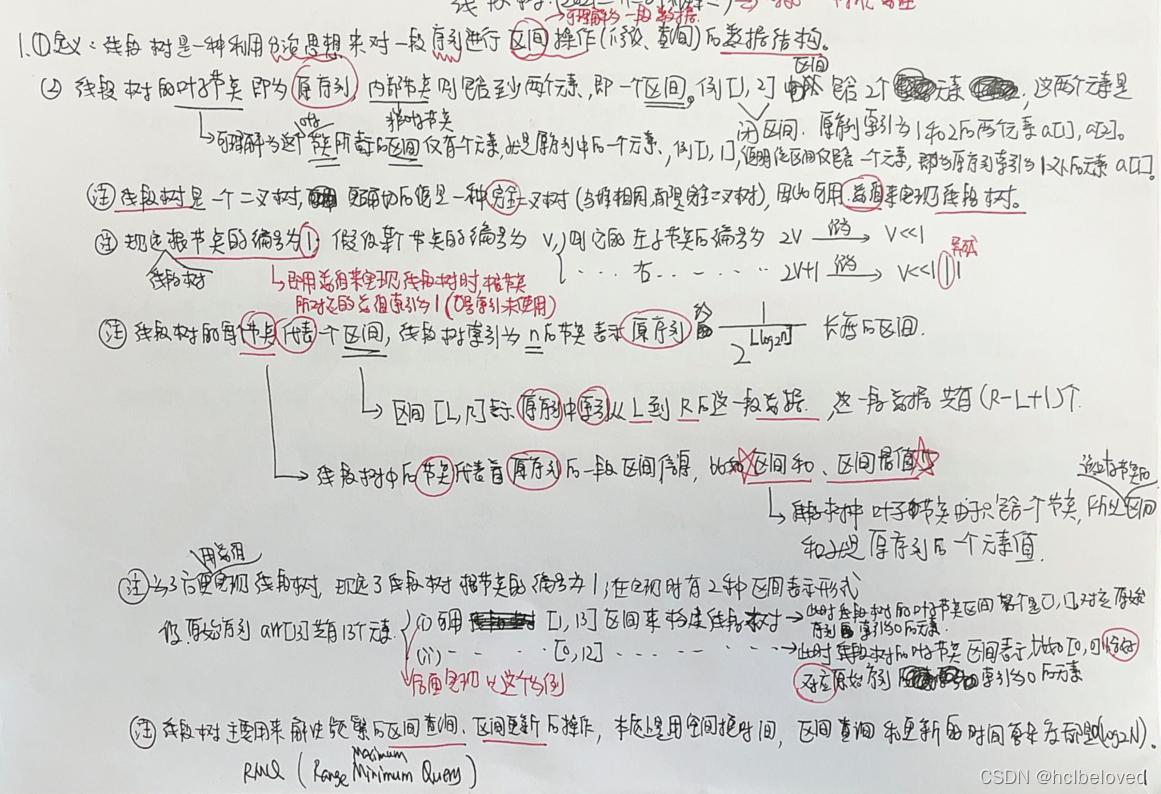 →可理解为一段数据.
1.①定义:线段树是一种利用分治思想来对一段序列进行区间操作(修改、查询)后数据结构。
② 线段树的叶子节点即为原序列,内部节点则包含至少两个元素,即一个区间。例[1,2]区间包含2个元素,这两个元素是
非叶子节点
闭区间. 原序列索引为1和2后两个元素a[1],a[2]。
↳可理解为这个叶子节点所表示后区间仅有一个元素,也是原序列中后一个元素,例[1,1],说明该区间仅包含一个元素,即为原序列索引为1后元素a[1]。
注 线段树是一个二叉树,更确切后说是一种完全二叉树(与堆相同,都是完全二叉树),因此可用数组来实现线段树。
注 规定根节点的编号为1. 假设某个节点的编号为 v,则它的左子节点后编号为 2v → v<<1
线段树
· · · · 右 · · · · 2v+1 → v<<1|1
↳即用数组来实现线段树时,根节点
所对应的数组索引为1(0号索引未使用)
注 线段树的每个节点代表一个区间,线段树索引为n后节点表示原序列的 1/2^⌊log2n⌋ 长度后区间.
↳区间[L,R]表示原序列中索引从L到R后这一段数据. 这一段数据共有(R-L+1)个.
→线段树中后节点代表着原序列后一段区间信息,比如☆区间和、区间最值☆
↳线段树中叶子节点由于只包含一个节点,所以区间
和也是原序列后一个元素值.
用数组
注 为了方便实现线段树,规定了线段树根节点的编号为1;在实现时有2种区间表示形式
假设原始序列 arr[13]共有13个元素.
(i)可用[1,13]区间来构建线段树→此时线段树的叶子节点区间某个是[1,1],对应原始
序列索引为0后元素.
(ii)· · · [0,12] · · · · · →此时线段树后叶子节点区间表示,比如[0,0]恰好
对应原始序列后索引为0后元素
后面实现以这个为例
注 线段树主要用来解决频繁后区间查询、区间更新后操作,本质上是用空间换时间,区间查询和更新的时间复杂度都是O(log2N)。
maximum
RMQ (Range Minimum Query)
CSDN @hclbeloved